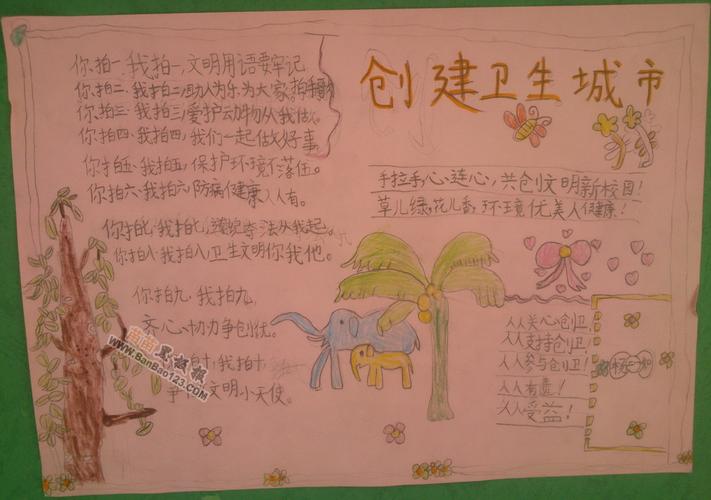 创建卫生城市
你拍一，我拍一，文明用语要牢记
你拍二，我拍二，助人为乐为大家。拍手歌
你拍三，我拍三，爱护动物从我做。
你拍四，我拍四，我们一起做好事，
你拍五，我拍五，保护环境不落伍。
你拍六，我拍六，防病健康人人有。
你拍七，我拍七，遵纪守法从我起。
你拍八，我拍八，卫生文明你我他。
你拍九，我拍九，
齐心协力争创优。
时，我拍十
争 文明小天使。
苗苗黑板报
www.BanBao123.com
手拉手，心连心，共创文明新校园！
草儿绿，花儿香，环境优美人健康！
人人关心创卫！
人人支持创卫！
人人参与创卫！
人人有责！
人人受益！